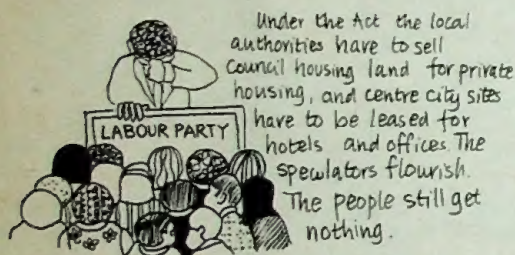 Under the Act the local
authorities have to sell
Council housing land for private
housing, and centre city sites
have to be leased for
hotels and offices. The
speculators flourish.
The people still get
nothing.
LABOUR PARTY